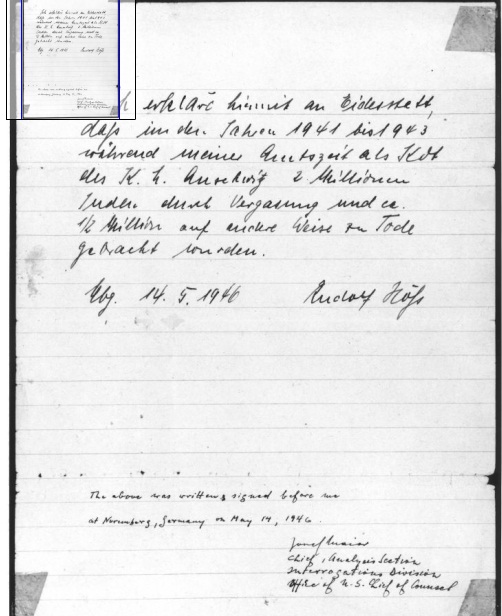 erkläre hiermit an Eidesstatt,
daß in den Jahren 1941 bis 1943
während meiner Amtszeit als Kdt
des K. L. Auschwitz 2 Millionen
Juden durch Vergasung und ca.
1/2 Million auf andere Weise zu Tode
gebracht wurden.
Nbg. 14. 5. 1946 Rudolf Höß
The above was written & signed before me
at Nuremberg, Germany on May 14, 1946.
Josef Maier
Chief, Analysis Section
Interrogations Division
Office of U.S. Chief of Counsel